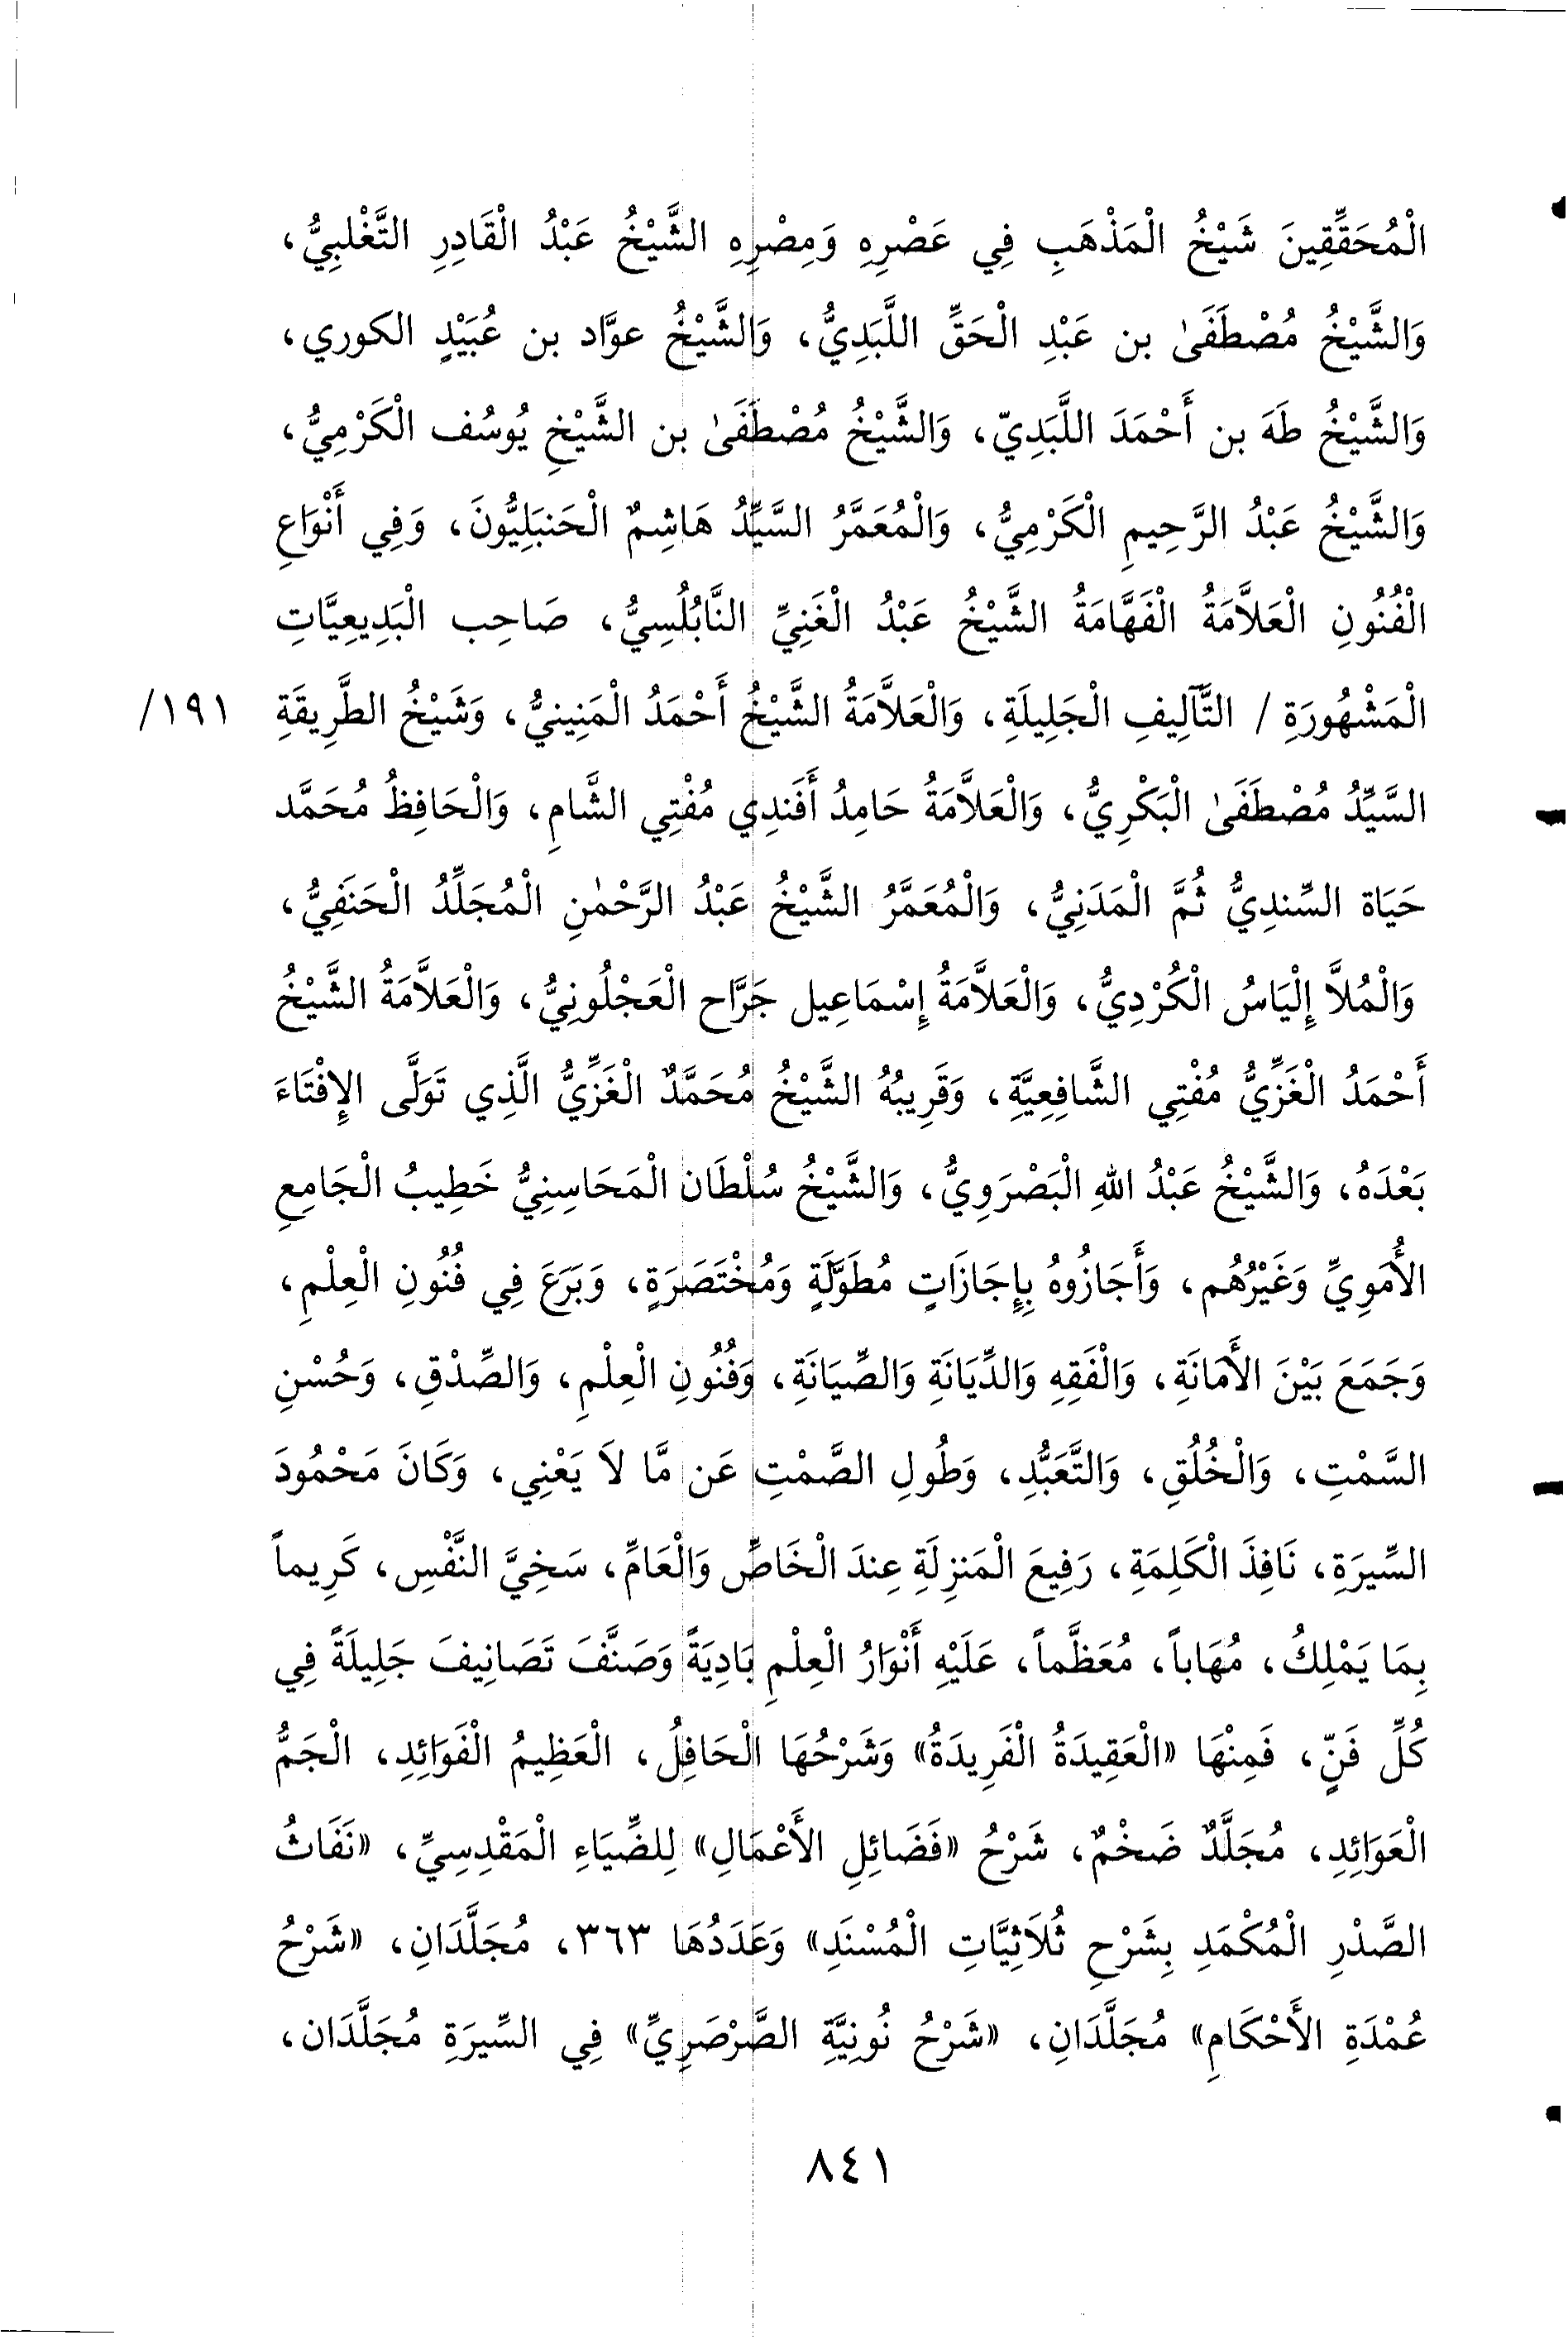 الْمُحَقِّقِينَ شَيْخُ الْمَذْهَبِ فِي عَصْرِهِ وَمِصْرِهِ الشَّيْخُ عَبْدُ الْقَادِرِ التَّغْلِبِيُّ،
وَالشَّيْخُ مُصْطَفَىٰ بن عَبْدِ الْحَقِّ اللَّبَدِيُّ، وَالشَّيْخُ عوَّاد بن عُبَيْدٍ الكوري،
وَالشَّيْخُ طَهَ بن أَحْمَدَ اللَّبَدِيّ، وَالشَّيْخُ مُصْطَفَىٰ بن الشَّيْخِ يُوسُف الْكَرْمِيُّ،
وَالشَّيْخُ عَبْدُ الرَّحِيمِ الْكَرْمِيُّ، وَالْمُعَمَّرُ السَّيِّدُ هَاشِمٌ الْحَنبَلِيُّونَ، وَفِي أَنْوَاعِ
الْفُنُونِ الْعَلاَّمَةُ الْفَهَّامَةُ الشَّيْخُ عَبْدُ الْغَنِيِّ النَّابُلُسِيُّ، صَاحِب الْبَدِيعِيَّاتِ
الْمَشْهُورَةِ / التَّآلِيفِ الْجَلِيلَةِ، وَالْعَلاَّمَةُ الشَّيْخُ أَحْمَدُ الْمَنِينيُّ، وَشَيْخُ الطَّرِيقَةِ ١٩١/
السَّيِّدُ مُصْطَفَىٰ الْبَكْرِيُّ، وَالْعَلاَّمَةُ حَامِدُ أَفَندِي مُفْتِي الشَّامِ، وَالْحَافِظُ مُحَمَّد
حَيَاة السِّندِيُّ ثُمَّ الْمَدَنِيُّ، وَالْمُعَمَّرُ الشَّيْخُ عَبْدُ الرَّحْمٰنِ الْمُجَلِّدُ الْحَنَفِيُّ،
وَالْمُلاَّ إِلْيَاسُ الْكُرْدِيُّ، وَالْعَلاَّمَةُ إِسْمَاعِيل جَرَّاح الْعَجْلُونِيُّ، وَالْعَلاَّمَةُ الشَّيْخُ
أَحْمَدُ الْغَزِّيُّ مُفْتِي الشَّافِعِيَّةِ، وَقَرِيبُهُ الشَّيْخُ مُحَمَّدٌ الْغَزِّيُّ الَّذِي تَوَلَّى الإِفْتَاءَ
بَعْدَهُ، وَالشَّيْخُ عَبْدُ اللهِ الْبَصْرَوِيُّ، وَالشَّيْخُ سُلْطَان الْمَحَاسِنِيُّ خَطِيبُ الْجَامِعِ
الأُمَوِيِّ وَغَيْرُهُم، وَأَجَازُوهُ بِإِجَازَاتٍ مُطَوَّلَةٍ وَمُخْتَصَرَةٍ، وَبَرَعَ فِي فُنُونِ الْعِلْمِ،
وَجَمَعَ بَيْنَ الأَمَانَةِ، وَالْفَقِهِ وَالدِّيَانَةِ وَالصِّيَانَةِ، وَفُنُونِ الْعِلْمِ، وَالصِّدْقِ، وَحُسْنِ
السَّمْتِ، وَالْخُلُقِ، وَالتَّعَبُّدِ، وَطُولِ الصَّمْتِ عَن مَّا لاَ يَعْنِي، وَكَانَ مَحْمُودَ
السِّيرَةِ، نَافِذَ الْكَلِمَةِ، رَفِيعَ الْمَنزِلَةِ عِندَ الْخَاصِّ وَالْعَامِّ، سَخِيَّ النَّفْسِ، كَرِيماً
بِمَا يَمْلِكُ، مُهَاباً، مُعَظَّماً، عَلَيْهِ أَنْوَارُ الْعِلْمِ بَادِيَةً وَصَنَّفَ تَصَانِيفَ جَلِيلَةً فِي
كُلِّ فَنٍّ، فَمِنْهَا «الْعَقِيدَةُ الْفَرِيدَةُ» وَشَرْحُهَا الْحَافِلُ، الْعَظِيمُ الْفَوَائِدِ، الْجَمُّ
الْعَوَائِدِ، مُجَلَّدٌ ضَخْمٌ، شَرْحُ «فَضَائِلِ الأَعْمَالِ» لِلضِّيَاءِ الْمَقْدِسِيِّ، «نَفَاثُ
الصَّدْرِ الْمُكْمَدِ بِشَرْحِ ثُلاَثِيَّاتِ الْمُسْنَدِ» وَعَدَدُهَا ٣٦٣، مُجَلَّدَانِ، «شَرْحُ
عُمْدَةِ الأَحْكَامِ» مُجَلَّدَانِ، «شَرْحُ نُونِيَّةِ الصَّرْصَرِيِّ» فِي السِّيرَةِ مُجَلَّدَان،
٨٤١